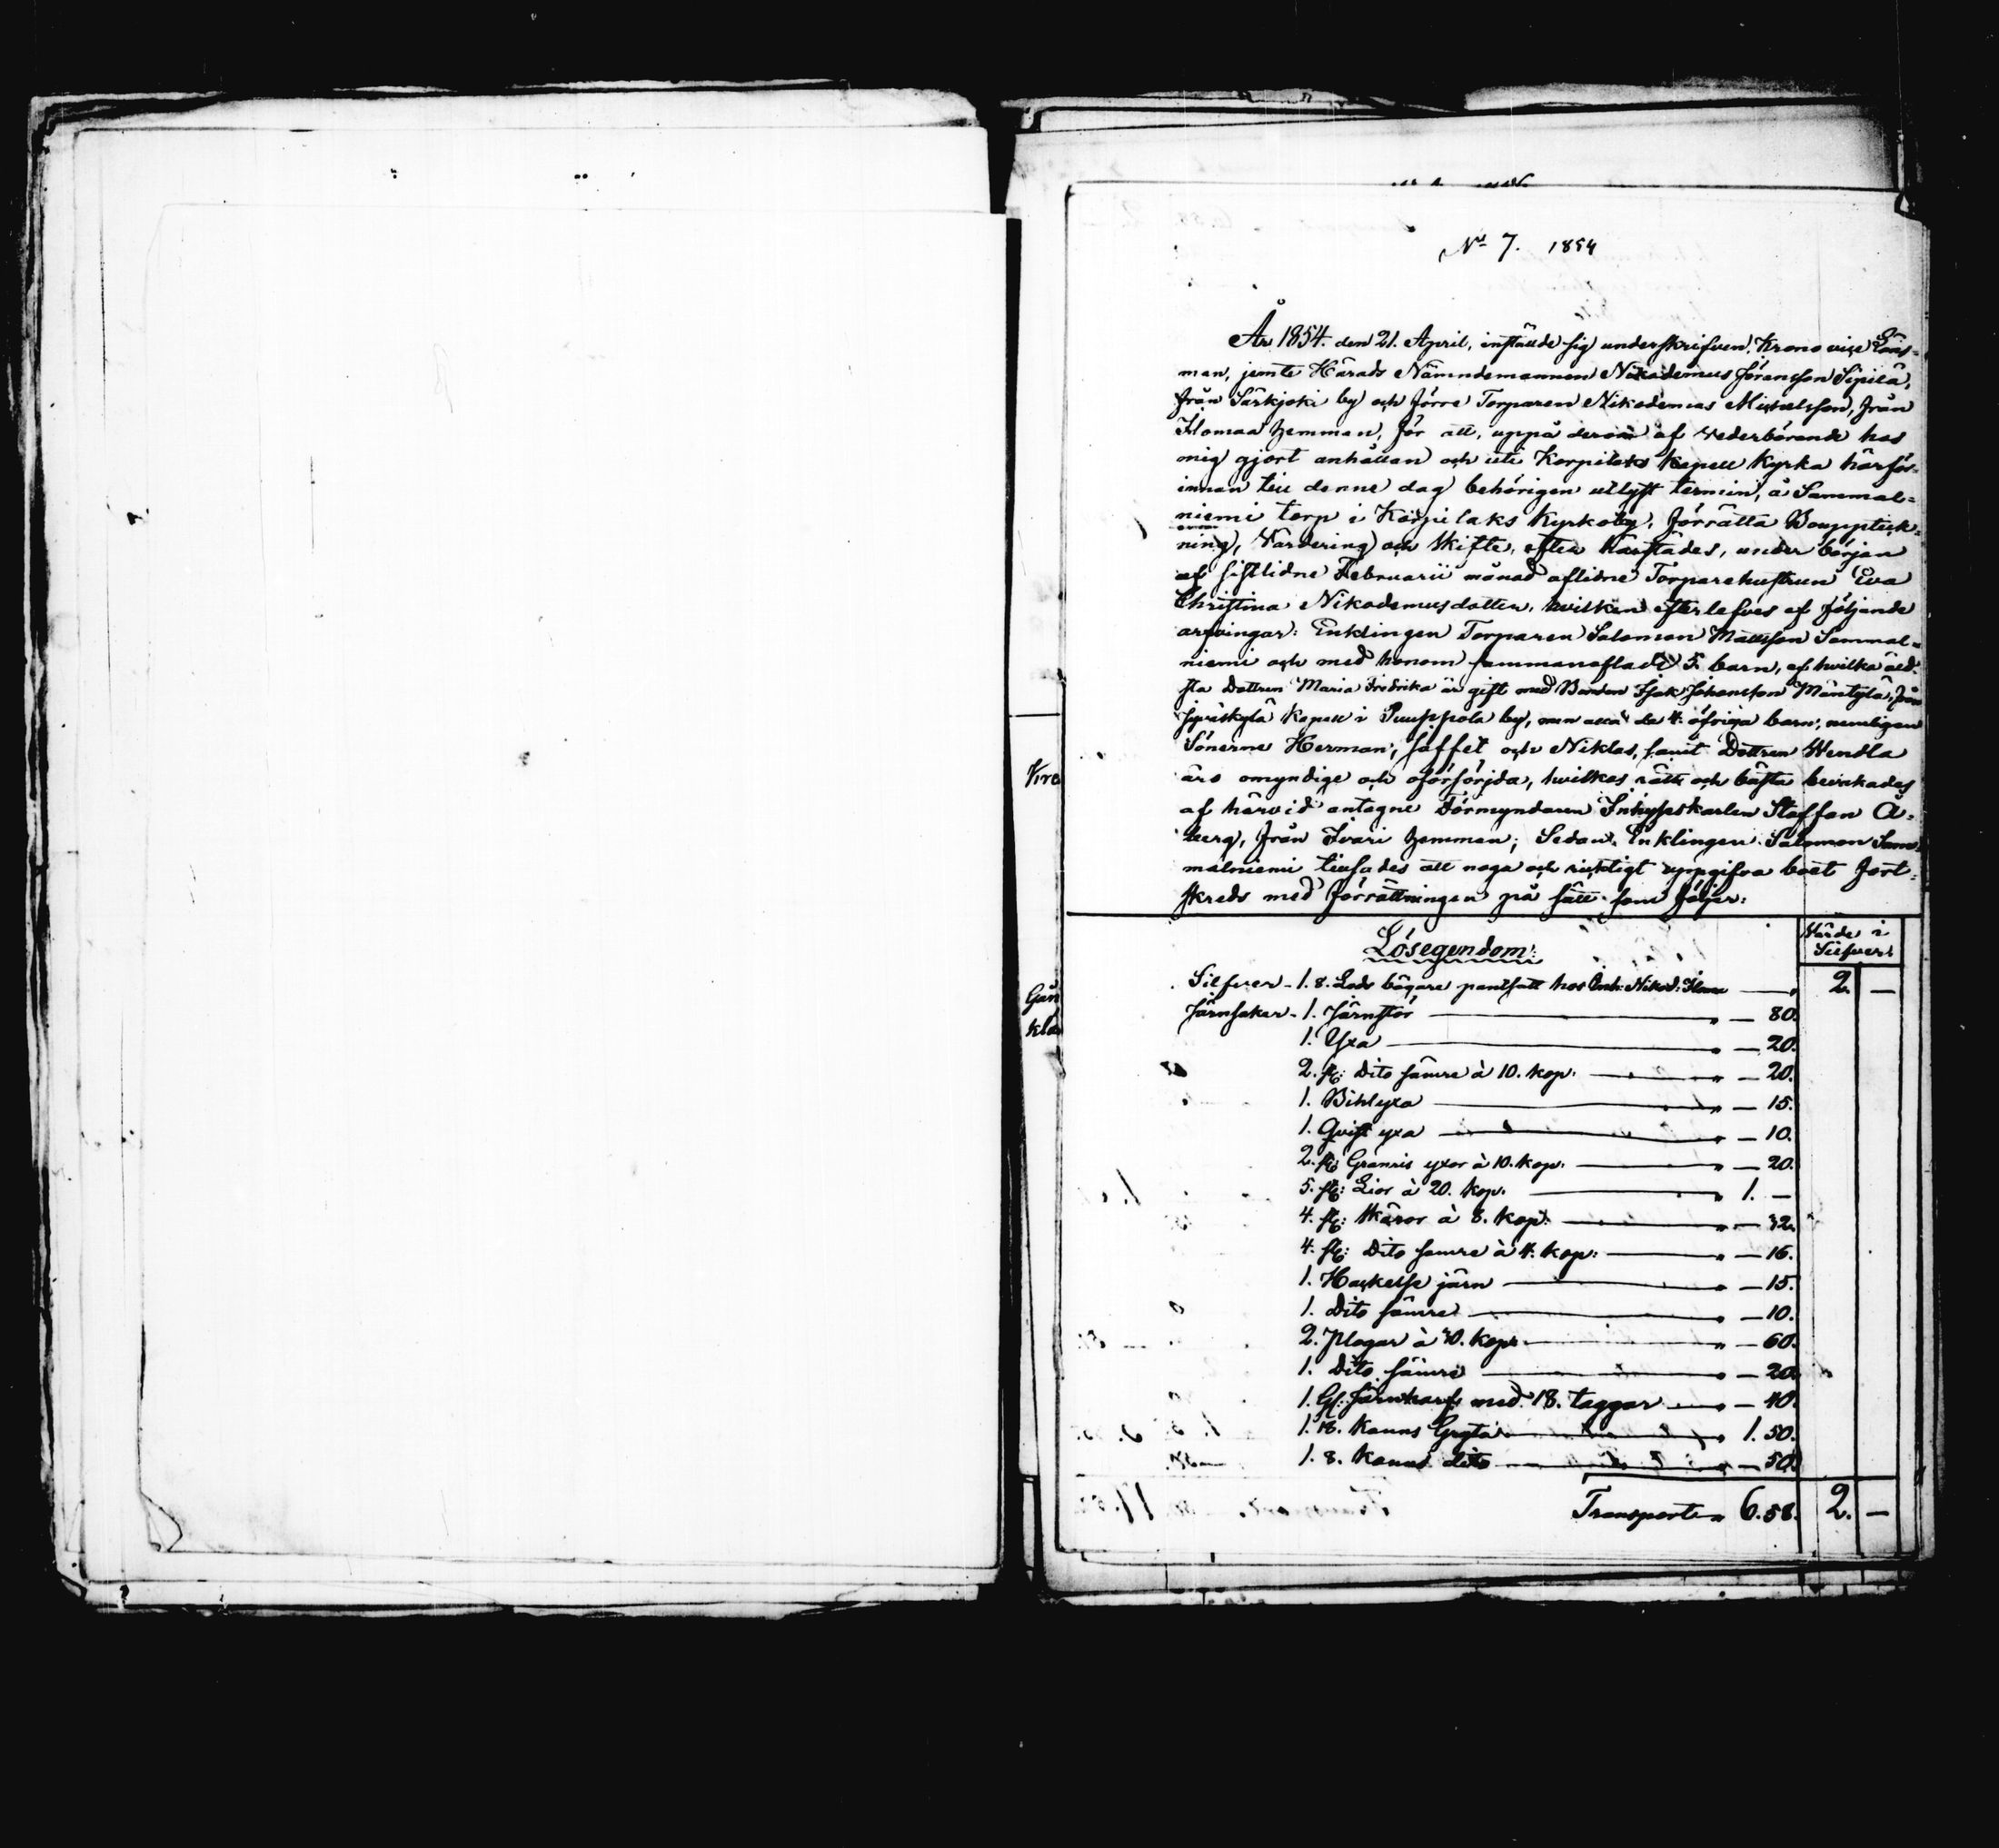 No 7. 1854
År 1854. den 21. April, instälde sig underskrifven, Krono vice Läns-
man, jemte Härads Nämndemannen Nikodemus Göransson Sipilä,
från Särkjoki by och förre Torparen Nikodemus Michelsson, från
Ilomaa hemman, för att, uppå derom af Vederbörande hos
mig gjort anhållan och uti Korpilaks Kapell Kyrka härför-
innan till denne dag behörigen utlyst termin, å Sammal-
niemi torp i Korpilaks Kyrkoby, förrätta Bouppteck-
ning, Värdering och Skifte, efter härstädes, under början
af sistlidne Februarii månad aflidne Torparehustrun Eva
Christina Nikodemusdotter, hvilken efterlefves af följande
arfvingar: Enklingen Torparen Salomon Mattsson Sammal-
niemi och med honom sammanaflade 5. barn, af hvilka äld-
sta Dottren Maria Fredrika är gift med Bonden Isak Johansson Mäntylä, från
Jyväskylä Kapell i Puuppola by, men alla de 4. öfriga barn, nemligen
Sönerne Herman, Jaffet och Niklas, samt Dottren Hendla
äro omyndige och oförsörjda, hvilkas rätt och bästa bevakades
af härvid antagne Förmyndaren Inhysskarlen Staffan Å-
berg, från Ivari hemman; Sedan Enklingen Salomon Sam-
malniemi tillsades att noga och riktigt uppgifva boet fort-
skreds med förrättningen på sätt som följer:
Lösegendom:
Värde i
Silfver
Silfver - 1. 8. Lods bägare pantsatt hos Nikod: — 2. —
Järnsaker - 1. Järnstör — 80.
1. Yxa — 20.
2. st: Dito sämre à 10. kop. — 20.
1. Bihlyxa — 15.
1. Qvist yxa — 10.
2. st: Granris yxor à 10. kop. — 20.
5. st: Lior à 20. kop. 1. —
4. st: Skäror à 8. kop. — 32.
4. st: Dito sämre à 4. kop: — 16.
1. Hackelse järn — 15.
1. Dito sämre — 10.
2. Plogar à 30. kop. — 60.
1. Dito sämre — 20.
1. Gl: Järnharf med 18. taggar — 40.
1. 18. Kanns Gryta 1. 50.
1. 8. Kanns dito — 50.
Transport 6. 58. 2. —
Kro
Gån
klä